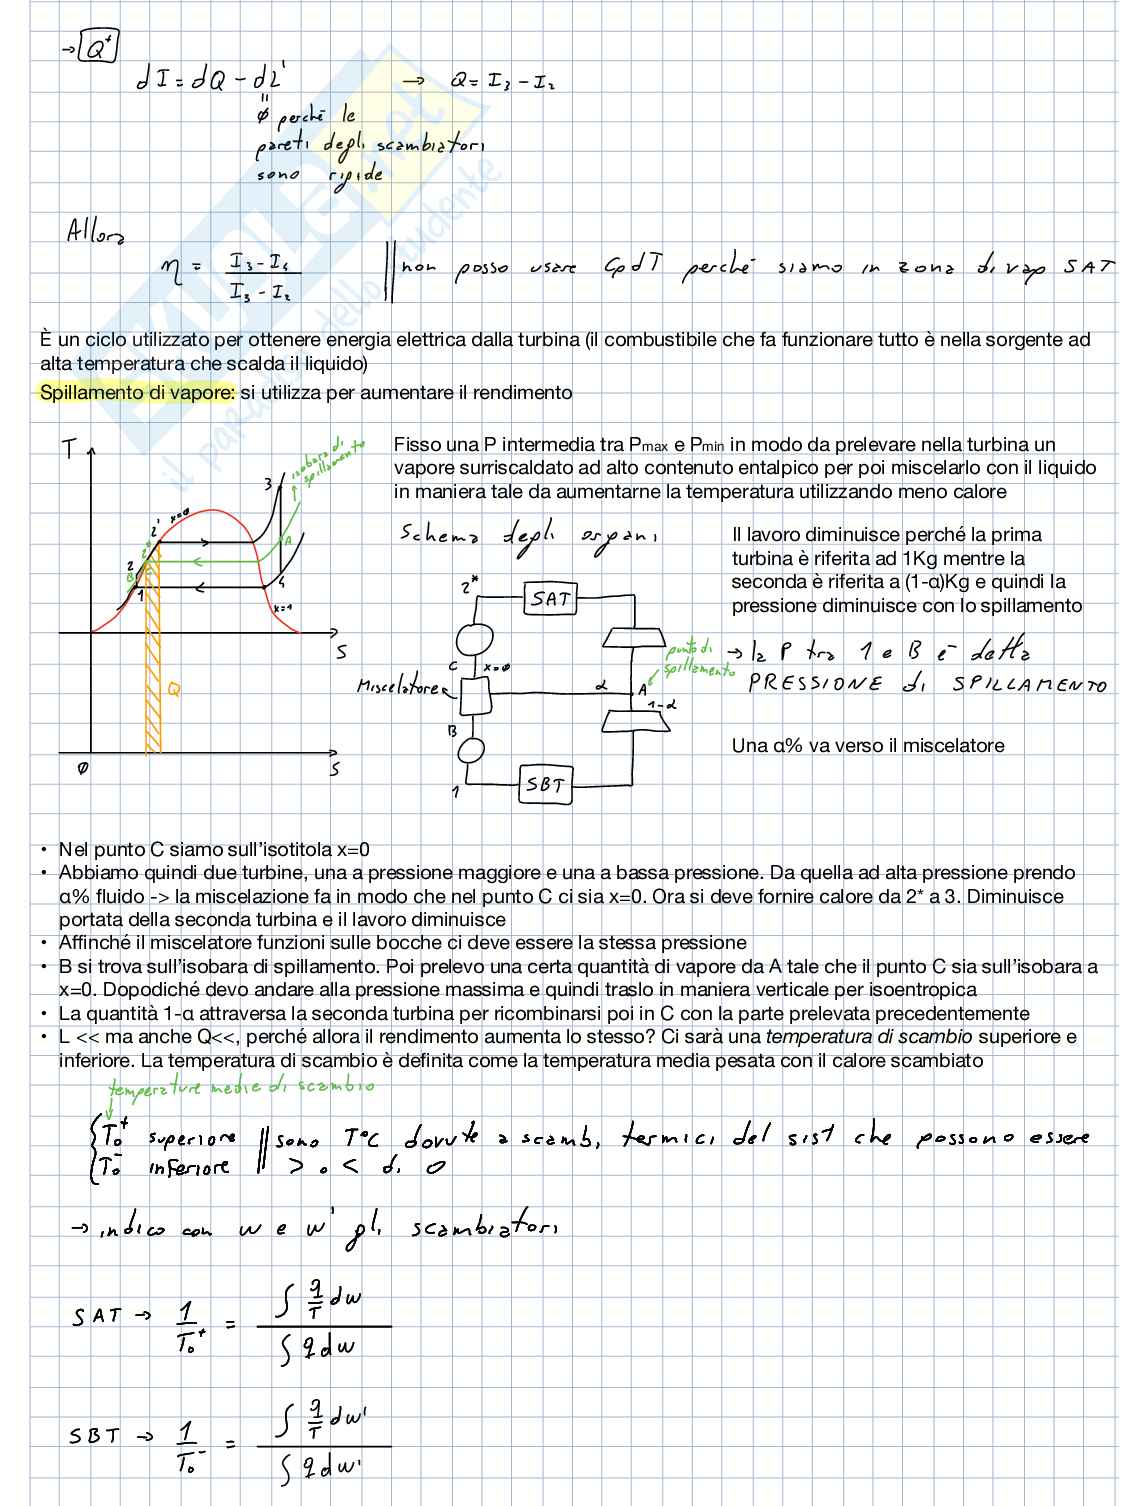 → Q⁺
dI = dQ - dL'   → Q = I₃ - I₂
"
∅ perché le
pareti degli scambiatori
sono rigide
Allora
η = (I₃ - I₄) / (I₃ - I₂)   || non posso usare CpdT perché siamo in zona di vap SAT
È un ciclo utilizzato per ottenere energia elettrica dalla turbina (il combustibile che fa funzionare tutto è nella sorgente ad
alta temperatura che scalda il liquido)
Spillamento di vapore: si utilizza per aumentare il rendimento
T
isobara di
spillamento
3
x=0
2'
2*
A
2
B
C
1
4
x=1
S
Q
∅
S
Fisso una P intermedia tra Pmax e Pmin in modo da prelevare nella turbina un
vapore surriscaldato ad alto contenuto entalpico per poi miscelarlo con il liquido
in maniera tale da aumentarne la temperatura utilizzando meno calore
Schema degli organi
2*
SAT
C
x=0
Miscelatore
α
A
punto di
spillamento
1-α
B
1
SBT
Il lavoro diminuisce perché la prima
turbina è riferita ad 1Kg mentre la
seconda è riferita a (1-α)Kg e quindi la
pressione diminuisce con lo spillamento
→ la P tra 1 e B è detta
PRESSIONE di SPILLAMENTO
Una α% va verso il miscelatore
• Nel punto C siamo sull'isotitola x=0
• Abbiamo quindi due turbine, una a pressione maggiore e una a bassa pressione. Da quella ad alta pressione prendo
α% fluido -> la miscelazione fa in modo che nel punto C ci sia x=0. Ora si deve fornire calore da 2* a 3. Diminuisce
portata della seconda turbina e il lavoro diminuisce
• Affinché il miscelatore funzioni sulle bocche ci deve essere la stessa pressione
• B si trova sull'isobara di spillamento. Poi prelevo una certa quantità di vapore da A tale che il punto C sia sull'isobara a
x=0. Dopodiché devo andare alla pressione massima e quindi traslo in maniera verticale per isoentropica
• La quantità 1-α attraversa la seconda turbina per ricombinarsi poi in C con la parte prelevata precedentemente
• L << ma anche Q<<, perché allora il rendimento aumenta lo stesso? Ci sarà una temperatura di scambio superiore e
inferiore. La temperatura di scambio è definita come la temperatura media pesata con il calore scambiato
temperature medie di scambio
T₀⁺ superiore || sono T°C dovute a scamb. termici del sist che possono essere
T₀⁻ inferiore || > o < di 0
→ indico con w e w' gli scambiatori
SAT → 1/T₀⁺ = ∫ q/T dw / ∫ q dw
SBT → 1/T₀⁻ = ∫ q/T dw' / ∫ q dw'